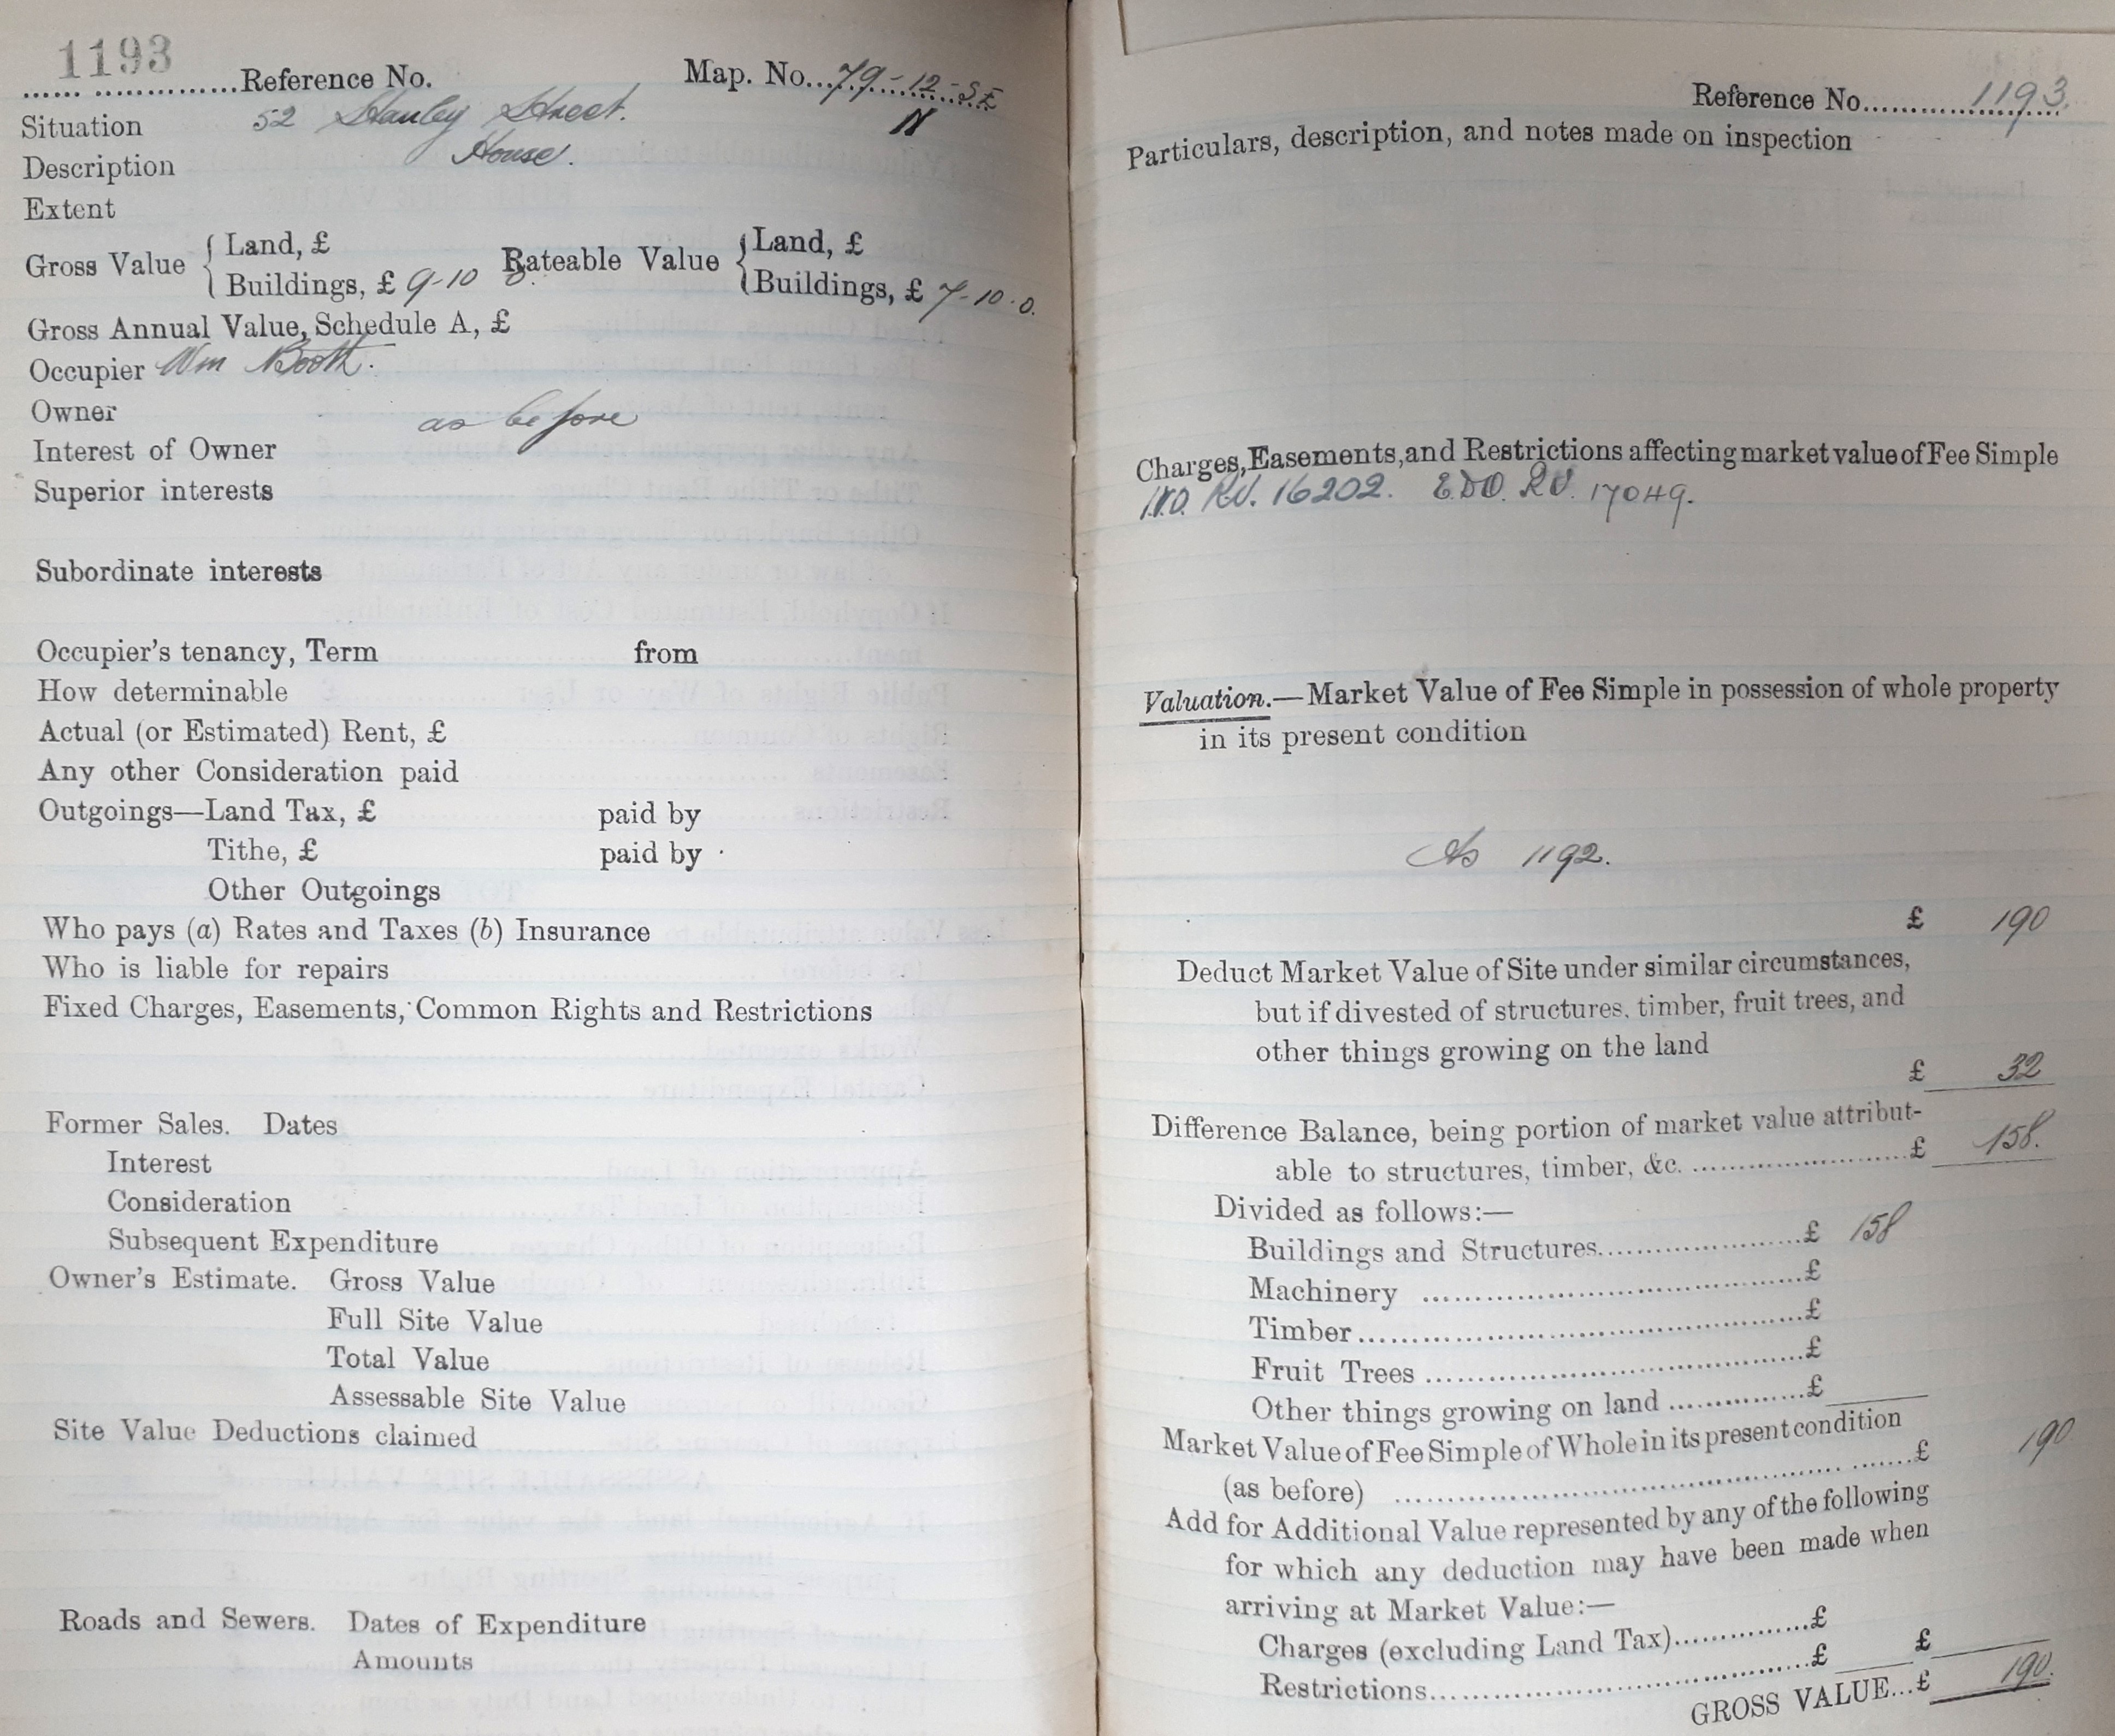 1193
...... ..............Reference No.
Map. No...79-12-SE
N
Situation 52 Stanley Street.
Description House.
Extent
Gross Value { Land, £
Buildings, £ 9-10 0.
Rateable Value { Land, £
Buildings, £ 7-10.0.
Gross Annual Value, Schedule A, £
Occupier Wm Booth.
Owner as before
Interest of Owner
Superior interests
Subordinate interests
Occupier's tenancy, Term from
How determinable
Actual (or Estimated) Rent, £
Any other Consideration paid
Outgoings—Land Tax, £ paid by
Tithe, £ paid by
Other Outgoings
Who pays (a) Rates and Taxes (b) Insurance
Who is liable for repairs
Fixed Charges, Easements, Common Rights and Restrictions
Former Sales. Dates
Interest
Consideration
Subsequent Expenditure
Owner's Estimate. Gross Value
Full Site Value
Total Value
Assessable Site Value
Site Value Deductions claimed
Roads and Sewers. Dates of Expenditure
Amounts
Reference No...........1193.
Particulars, description, and notes made on inspection
Charges, Easements, and Restrictions affecting market value of Fee Simple
RV. 16202. EDO. RV. 17049.
Valuation.—Market Value of Fee Simple in possession of whole property
in its present condition
As 1192.
£ 190
Deduct Market Value of Site under similar circumstances,
but if divested of structures, timber, fruit trees, and
other things growing on the land
£ 32
Difference Balance, being portion of market value attribut-
able to structures, timber, &c. ..........................£ 158.
Divided as follows:—
Buildings and Structures.........................£ 158
Machinery .............................................£
Timber...................................................£
Fruit Trees ............................................£
Other things growing on land ...............£
Market Value of Fee Simple of Whole in its present condition
(as before) ...................................................£ 190
Add for Additional Value represented by any of the following
for which any deduction may have been made when
arriving at Market Value:—
Charges (excluding Land Tax)................£
Restrictions............................................£ £
GROSS VALUE...£ 190.